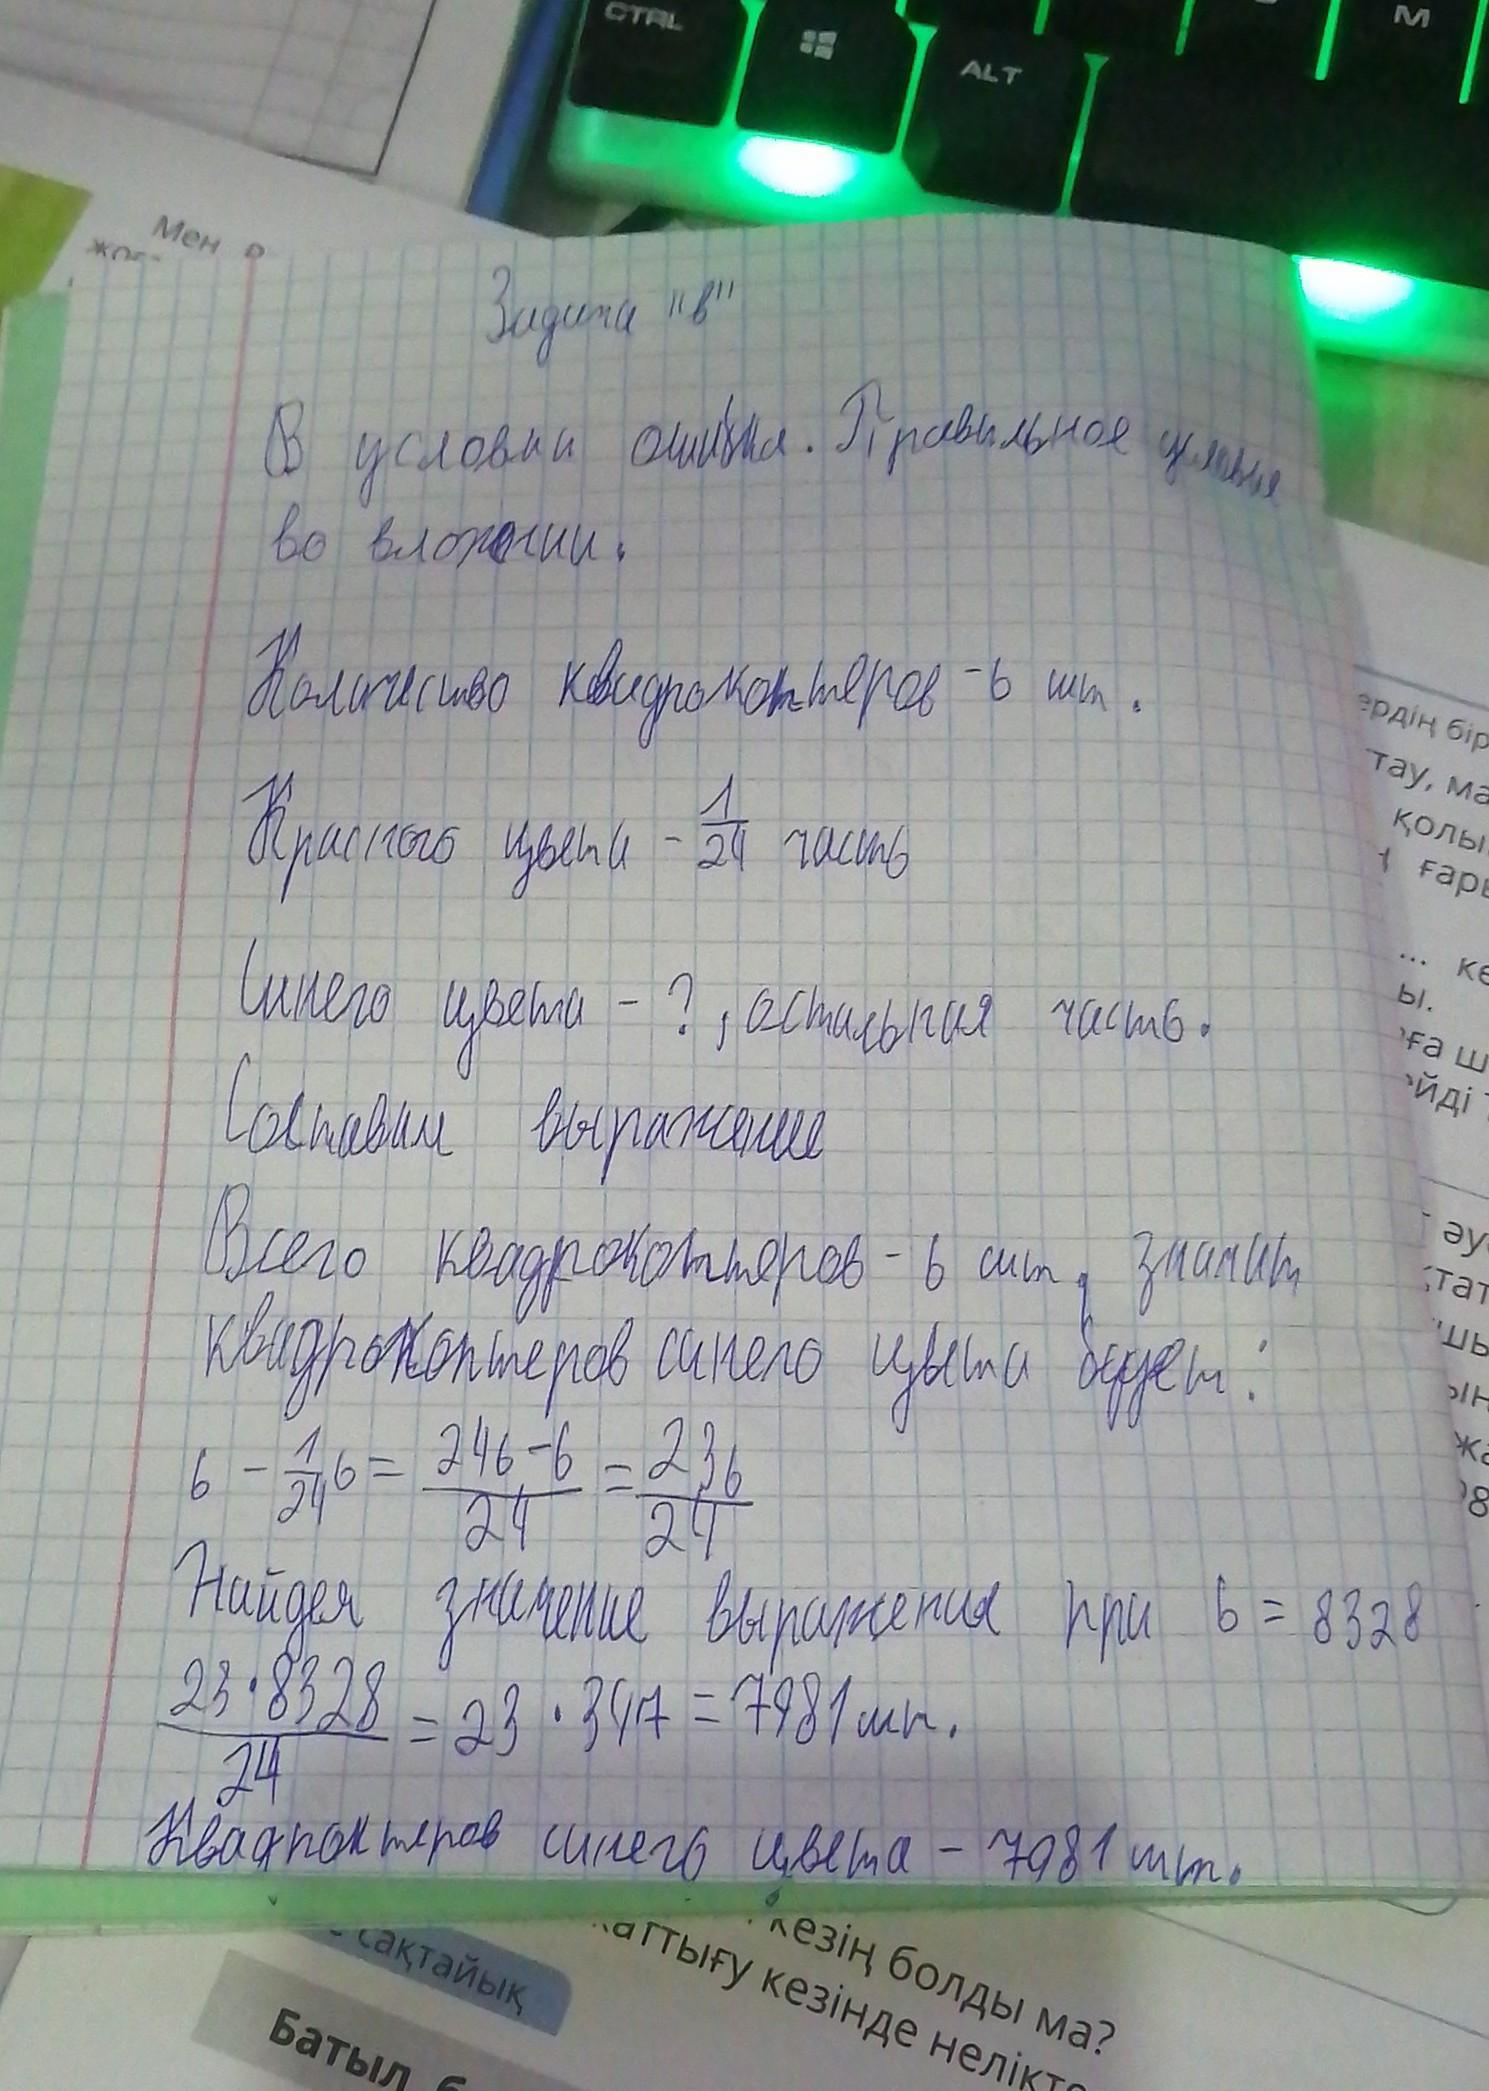 CTRL
ALT
M
Мен
Задача "в"
В условии ошибка. Правильное условие
во вложении.
Количество квадрокоптеров - b шт.
Красного цвета - 1/24 часть
Синего цвета - ?, остальная часть.
Составим выражение
Всего квадрокоптеров - b шт, значит
квадрокоптеров синего цвета будет:
b - 1/24 b = 24b - b / 24 = 23b / 24
Найдем значение выражения при b = 8328
23 · 8328 / 24 = 23 · 347 = 7981 шт.
Квадроктеров синего цвета - 7981 шт.
ердің бір
тау, ма
қолы
ғары
... ке
ы.
ға ш
йді
әу
тат
шы
ын
жа
98
сақтайық
кезің болды ма?
жаттығу кезінде нелікте
Батыл б